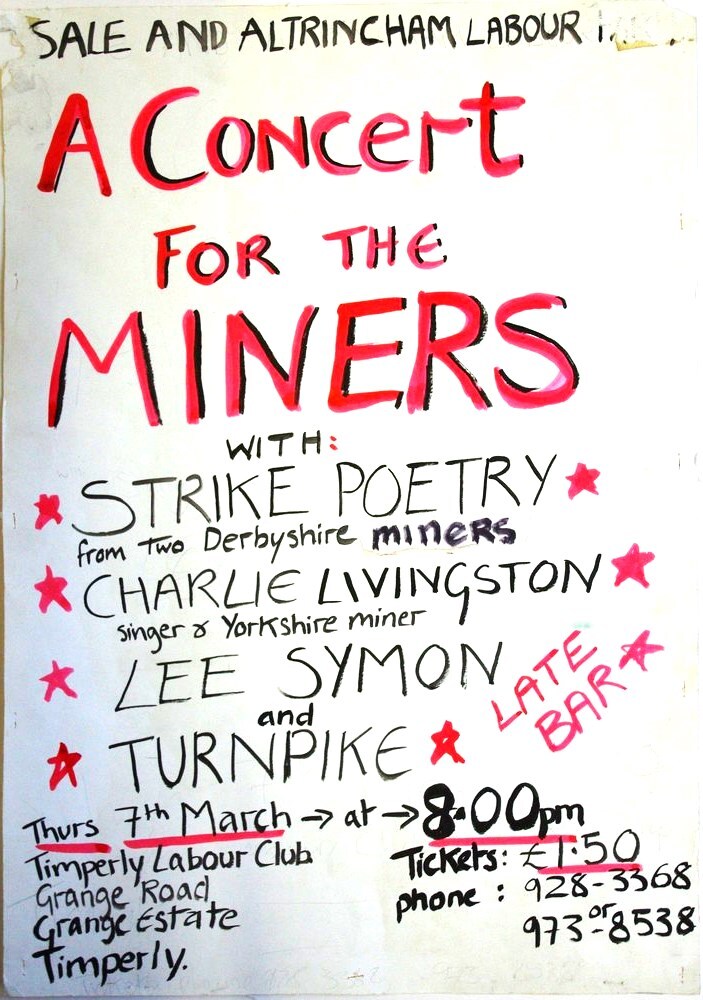 SALE AND ALTRINCHAM LABOUR
A Concert
FOR THE
MINERS
WITH:
STRIKE POETRY
from Two Derbyshire miners
CHARLIE LIVINGSTON
singer & Yorkshire miner
LEE SYMON
and
TURNPIKE
LATE
BAR
Thurs 7th March → at → 8.00pm
Timperly Labour Club
Grange Road
Grange Estate
Timperly.
Tickets: £1.50
phone : 928-3368
or
973-8538